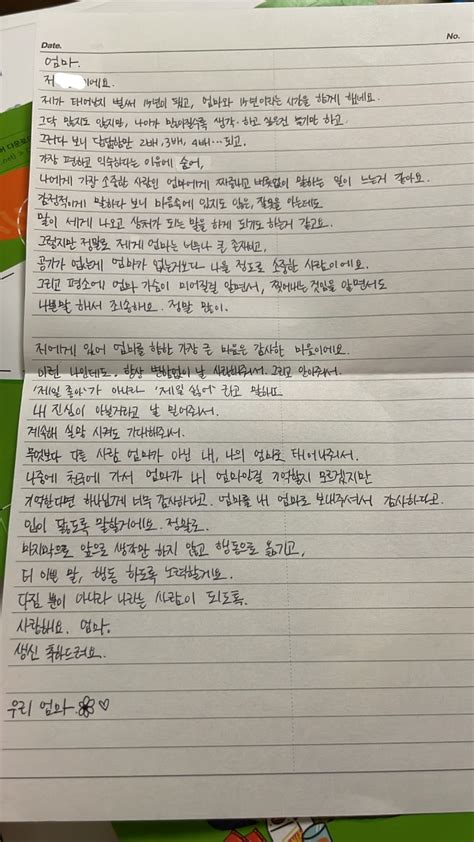 Date.
No.
엄마.
저 에요.
제가 태어난지 벌써 14년이 됐고, 엄마와 14년이라는 시간을 함께 해네요.
그닥 많지도 않지만, 나이가 많아질수록 생각하고 싶은건 늘기만 하고.
그러다 보니 답답함만 2배, 3배, 4배… 되고.
가장 편하고 익숙하다는 이유에 숨어,
나에게 가장 소중한 사람인 엄마에게 짜증내고 버릇없이 말하는 일이 느는거 같아요.
감정적이게 말하다 보니 마음속에 있지도 않은, 잘못을 아는데도
말이 세게 나오고 상처가 되는 말을 하게 되기도 하는거 같고요.
그렇지만 정말로 제게 엄마는 너무나 큰 존재이고,
공기가 없는게 엄마가 없는거보다 나을 정도로 소중한 사람이에요.
그리고 평소에 엄마 가슴이 미어질걸 알면서, 찢어내는 것임을 알면서도
나쁜말 해서 죄송해요. 정말 많이.
저에게 있어 엄마를 향한 가장 큰 마음은 감사한 마음이에요.
이런 나인데도, 항상 변함없이 날 사랑해주셔서. 그리고 안아주셔서.
'제일 좋아'가 아니라 '제일 싫어' 라고 말해도
내 진심이 아닐거라고 날 믿어주셔서.
계속해 실망 시켜도 기대해주셔서.
무엇보다 다른 사람 엄마가 아닌 내, 나의 엄마로 태어나주셔서.
나중에 천국에 가서 엄마가 내 엄마인걸 기억할지 모르겠지만
기억한다면 하나님께 너무 감사하다고. 엄마를 내 엄마로 보내주셔서 감사하다고.
입이 닳도록 말할거에요. 정말로.
마지막으로 앞으로 생각만 하지 않고 행동으로 옮기고,
더 이쁜 말, 행동 하도록 노력할게요.
다짐 뿐이 아니라 나는 사람이 되도록.
사랑해요. 엄마.
생신 축하드려요.
우리 엄마